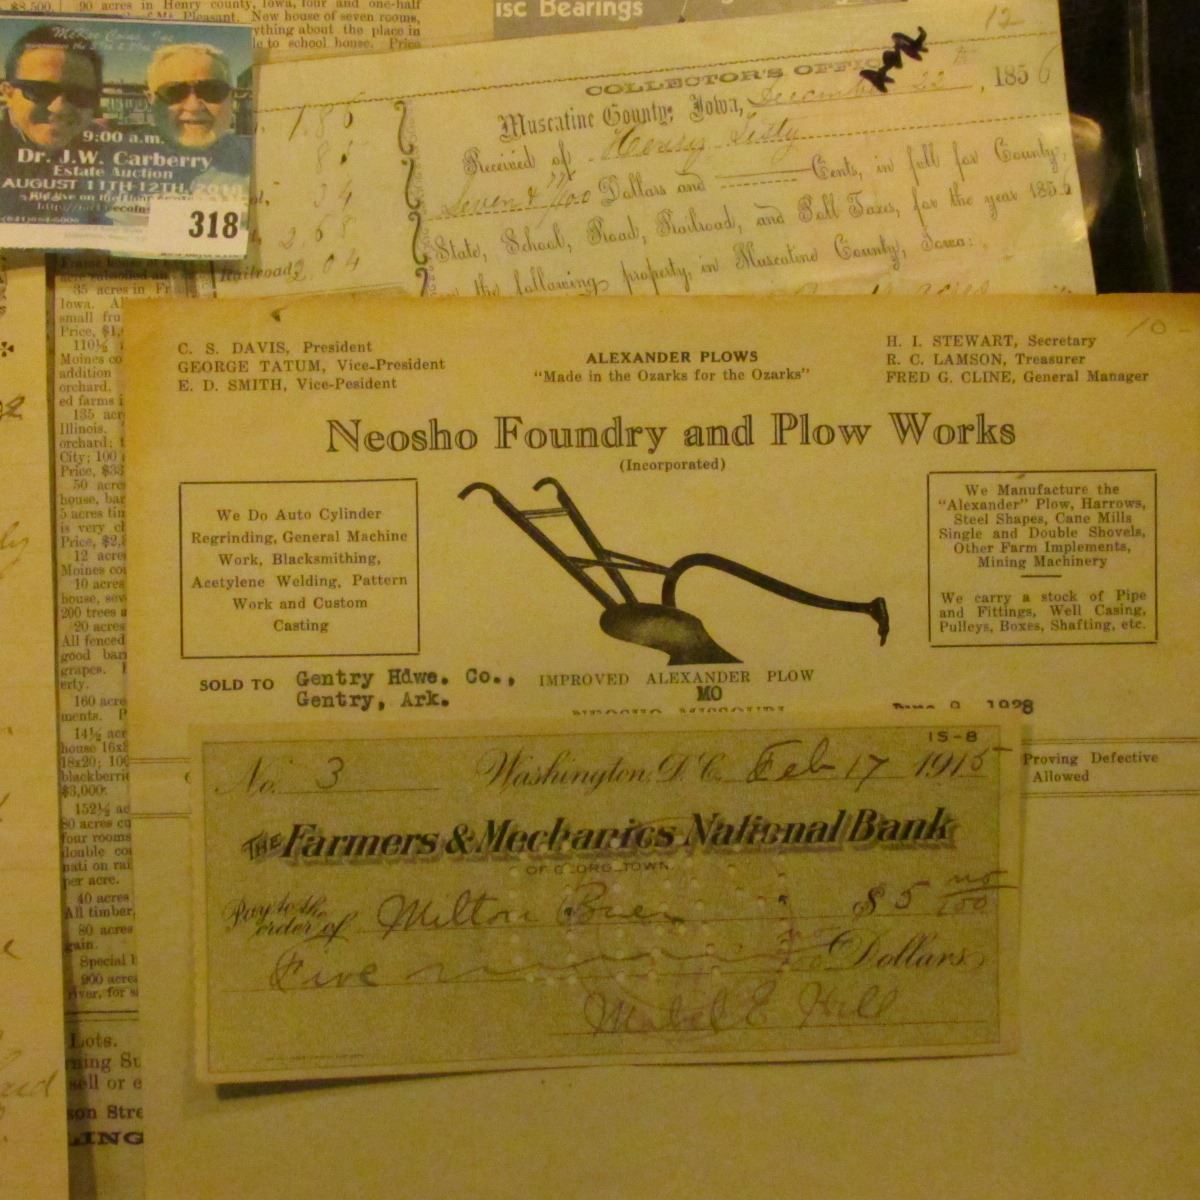 isc Bearings
90 acres in Henry county, Iowa, four and one-half
Mt. Pleasant. New house of seven rooms,
everything about the place in
to school house. Price
McKee Coins, Inc.
9:00 a.m.
Dr. J.W. Carberry
Estate Auction
AUGUST 11TH-12TH, 2018
318
12
COLLECTOR'S OFFICE
Muscatine County, Iowa, December 22th, 1856
Received of Henry
Seven & 77/100 Dollars and Cents, in full for County,
State, School, Road, Railroad, and Poll Taxes, for the year 1856
the following property, in Muscatine County, Iowa:
acres
1.86
85
34
2.68
Railroad, 2 04
35 acres in
Iowa.
small fru
Price, $1,
110½
Moines co
addition
orchard.
ed farms i
135 acr
Illinois.
orchard;
City; 100
Price, $38
50 acre
house, bar
5 acres tin
is very cl
Price, $2,
12 acre
Moines cou
10 acres
house, sev
200 trees a
20 acres
All fenced
good bar
grapes.
erty.
160 acre
ments.
14½ acr
house 16x
18x20; 100
blackberrie
$3,000.
152½ ac
80 acres cu
four rooms
double co
nati on rai
per acre.
40 acres
All timber,
80 acres
gain.
Special
900 acres
river, for s
Lots.
ning Su
sell or e
son Stre
LING
10-
C. S. DAVIS, President
GEORGE TATUM, Vice-President
E. D. SMITH, Vice-Pesident
ALEXANDER PLOWS
"Made in the Ozarks for the Ozarks"
H. I. STEWART, Secretary
R. C. LAMSON, Treasurer
FRED G. CLINE, General Manager
Neosho Foundry and Plow Works
(Incorporated)
We Do Auto Cylinder
Regrinding, General Machine
Work, Blacksmithing,
Acetylene Welding, Pattern
Work and Custom
Casting
We Manufacture the
"Alexander" Plow, Harrows,
Steel Shapes, Cane Mills
Single and Double Shovels,
Other Farm Implements,
Mining Machinery
We carry a stock of Pipe
and Fittings, Well Casing,
Pulleys, Boxes, Shafting, etc.
SOLD TO Gentry Hdwe. Co.,
Gentry, Ark.
IMPROVED ALEXANDER PLOW
MO
NEOSHO, MISSOURI
June 9, 1928
Proving Defective
Allowed
15-8
No. 3 Washington, D.C. Feb 17 1915
THE Farmers & Mechanics National Bank
OF GEORGETOWN
Pay to the order of Milton $5 no/100
Five no/100 Dollars
Mabel E Hill